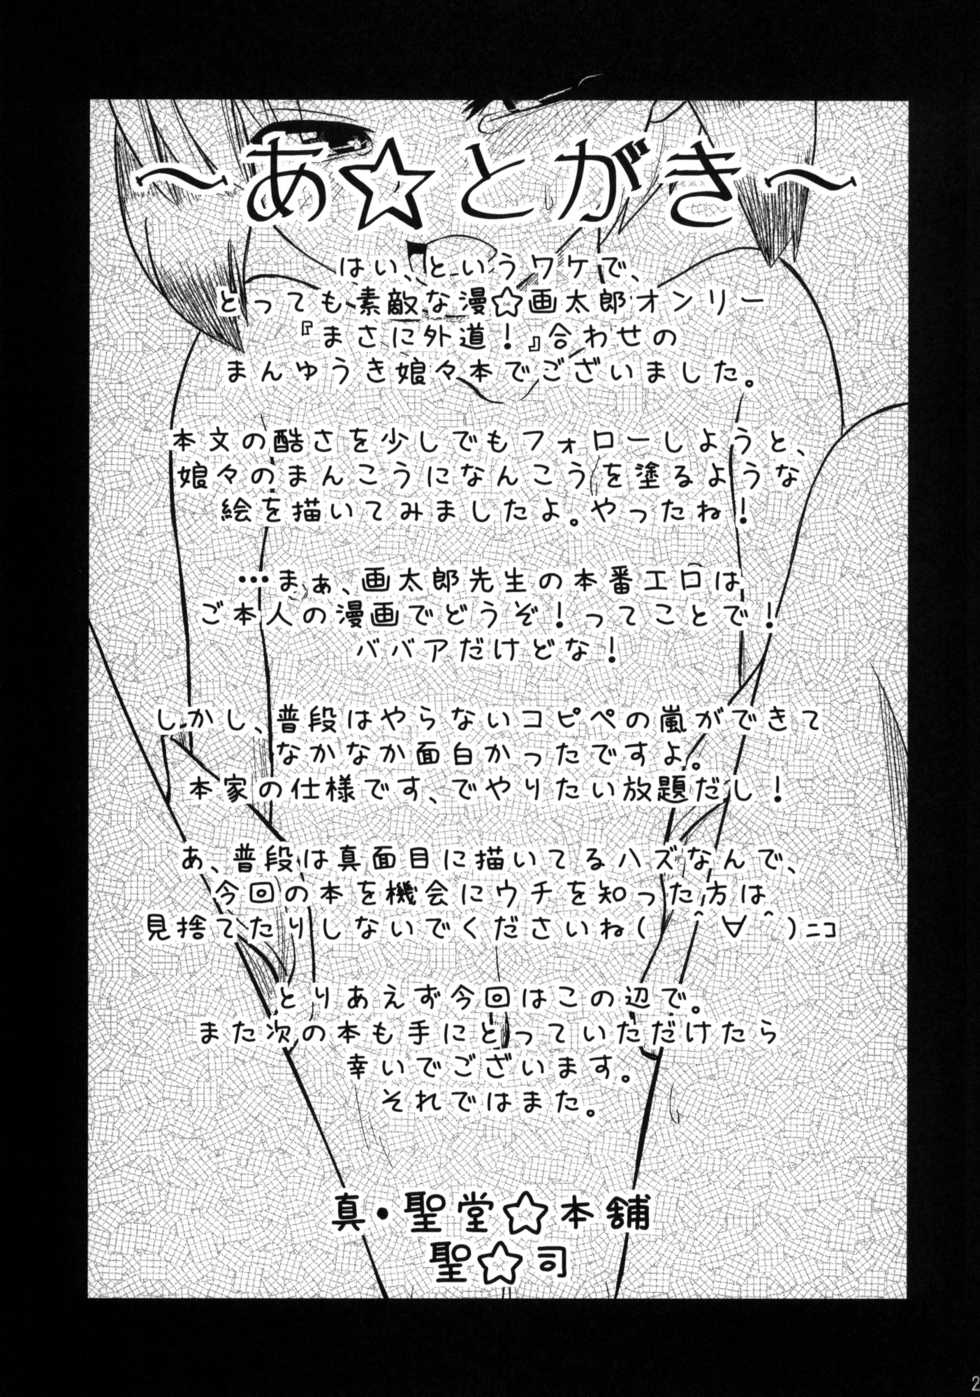 ～あ☆とがき～
はい、というワケで、
とっても素敵な漫☆画太郎オンリー
『まさに外道！』合わせの
まんゆうき娘々本でございました。
本文の酷さを少しでもフォローしようと、
娘々のまんこうになんこうを塗るような
絵を描いてみましたよ。やったね！
…まぁ、画太郎先生の本番エロは
ご本人の漫画でどうぞ！ってことで！
ババアだけどな！
しかし、普段はやらないコピペの嵐ができて
なかなか面白かったですよ。
本家の仕様です、でやりたい放題だし！
あ、普段は真面目に描いてるハズなんで、
今回の本を機会にウチを知った方は
見捨てたりしないでくださいね(＾∀＾)ﾆｺ
とりあえず今回はこの辺で。
また次の本も手にとっていただけたら
幸いでございます。
それではまた。
真・聖堂☆本舗
聖☆司